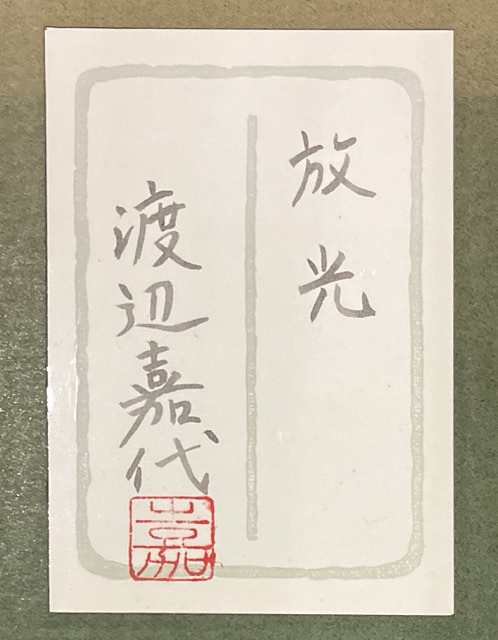 放光
渡辺嘉代
嘉